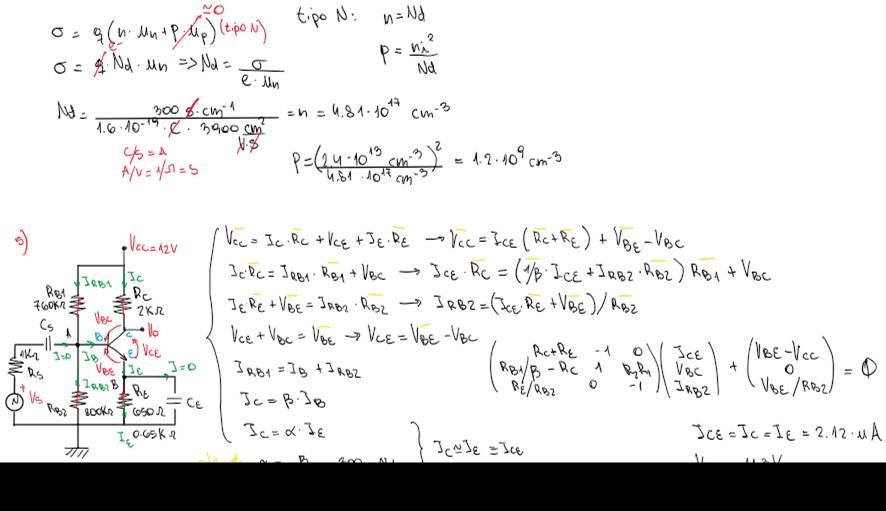 σ = q (n · μn + p · μp) ≃0 (tipo N)
tipo N: n = Nd
p = ni² / Nd
σ = q e⁻ · Nd · μn => Nd = σ / (e · μn)
Nd = (300 S·cm⁻¹) / (1.6·10⁻¹⁹ · C · 3900 cm²/V·S) = n = 4.81·10¹⁷ cm⁻³
C/S = A
A/V = 1/Ω = S
p = (2.4·10¹³ cm⁻³)² / (4.81·10¹⁷ cm⁻³) = 1.2·10⁹ cm⁻³
5)
VCC = 12V
IRB1
IC
RB1
760KΩ
RC
2KΩ
VBC
C
VO
CS
A
B
VCE
1KΩ
I=0
IB
VBE
E
RS
IE
I=0
+
VS
IRB2
B
RB2
800KΩ
RE
650Ω
CE
0.65KΩ
IE
VCC = IC · RC + VCE + IE · RE → VCC = ICE (RC + RE) + VBE − VBC
IC·RC = IRB1 · RB1 + VBC → ICE · RC = (1/β · ICE + IRB2 · RB2) RB1 + VBC
IE RE + VBE = IRB2 · RB2 → IRB2 = (ICE · RE + VBE) / RB2
VCE + VBC = VBE → VCE = VBE − VBC
IRB1 = IB + IRB2
IC = β · IB
IC = α · IE
IC ≃ IE = ICE
(RC+RE −1 0) (ICE) + (VBE − VCC)
(RB1/β − RC 1 R2R1) (VBC) (0) = 0
(RE/RB2 0 −1) (IRB2) (VBE/RB2)
ICE = IC = IE = 2.12 · μA